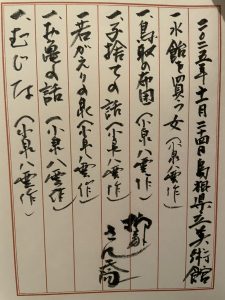 二〇二五年十一月二十四日島根県立美術館
一、水飴を買う女(小泉八雲作)
一、鳥取の布団(小泉八雲作)
一、子捨ての話(小泉八雲作)
一、若がえりの泉(小泉八雲作)
一、お亀の話(小泉八雲作)
一、むじな(小泉八雲作)